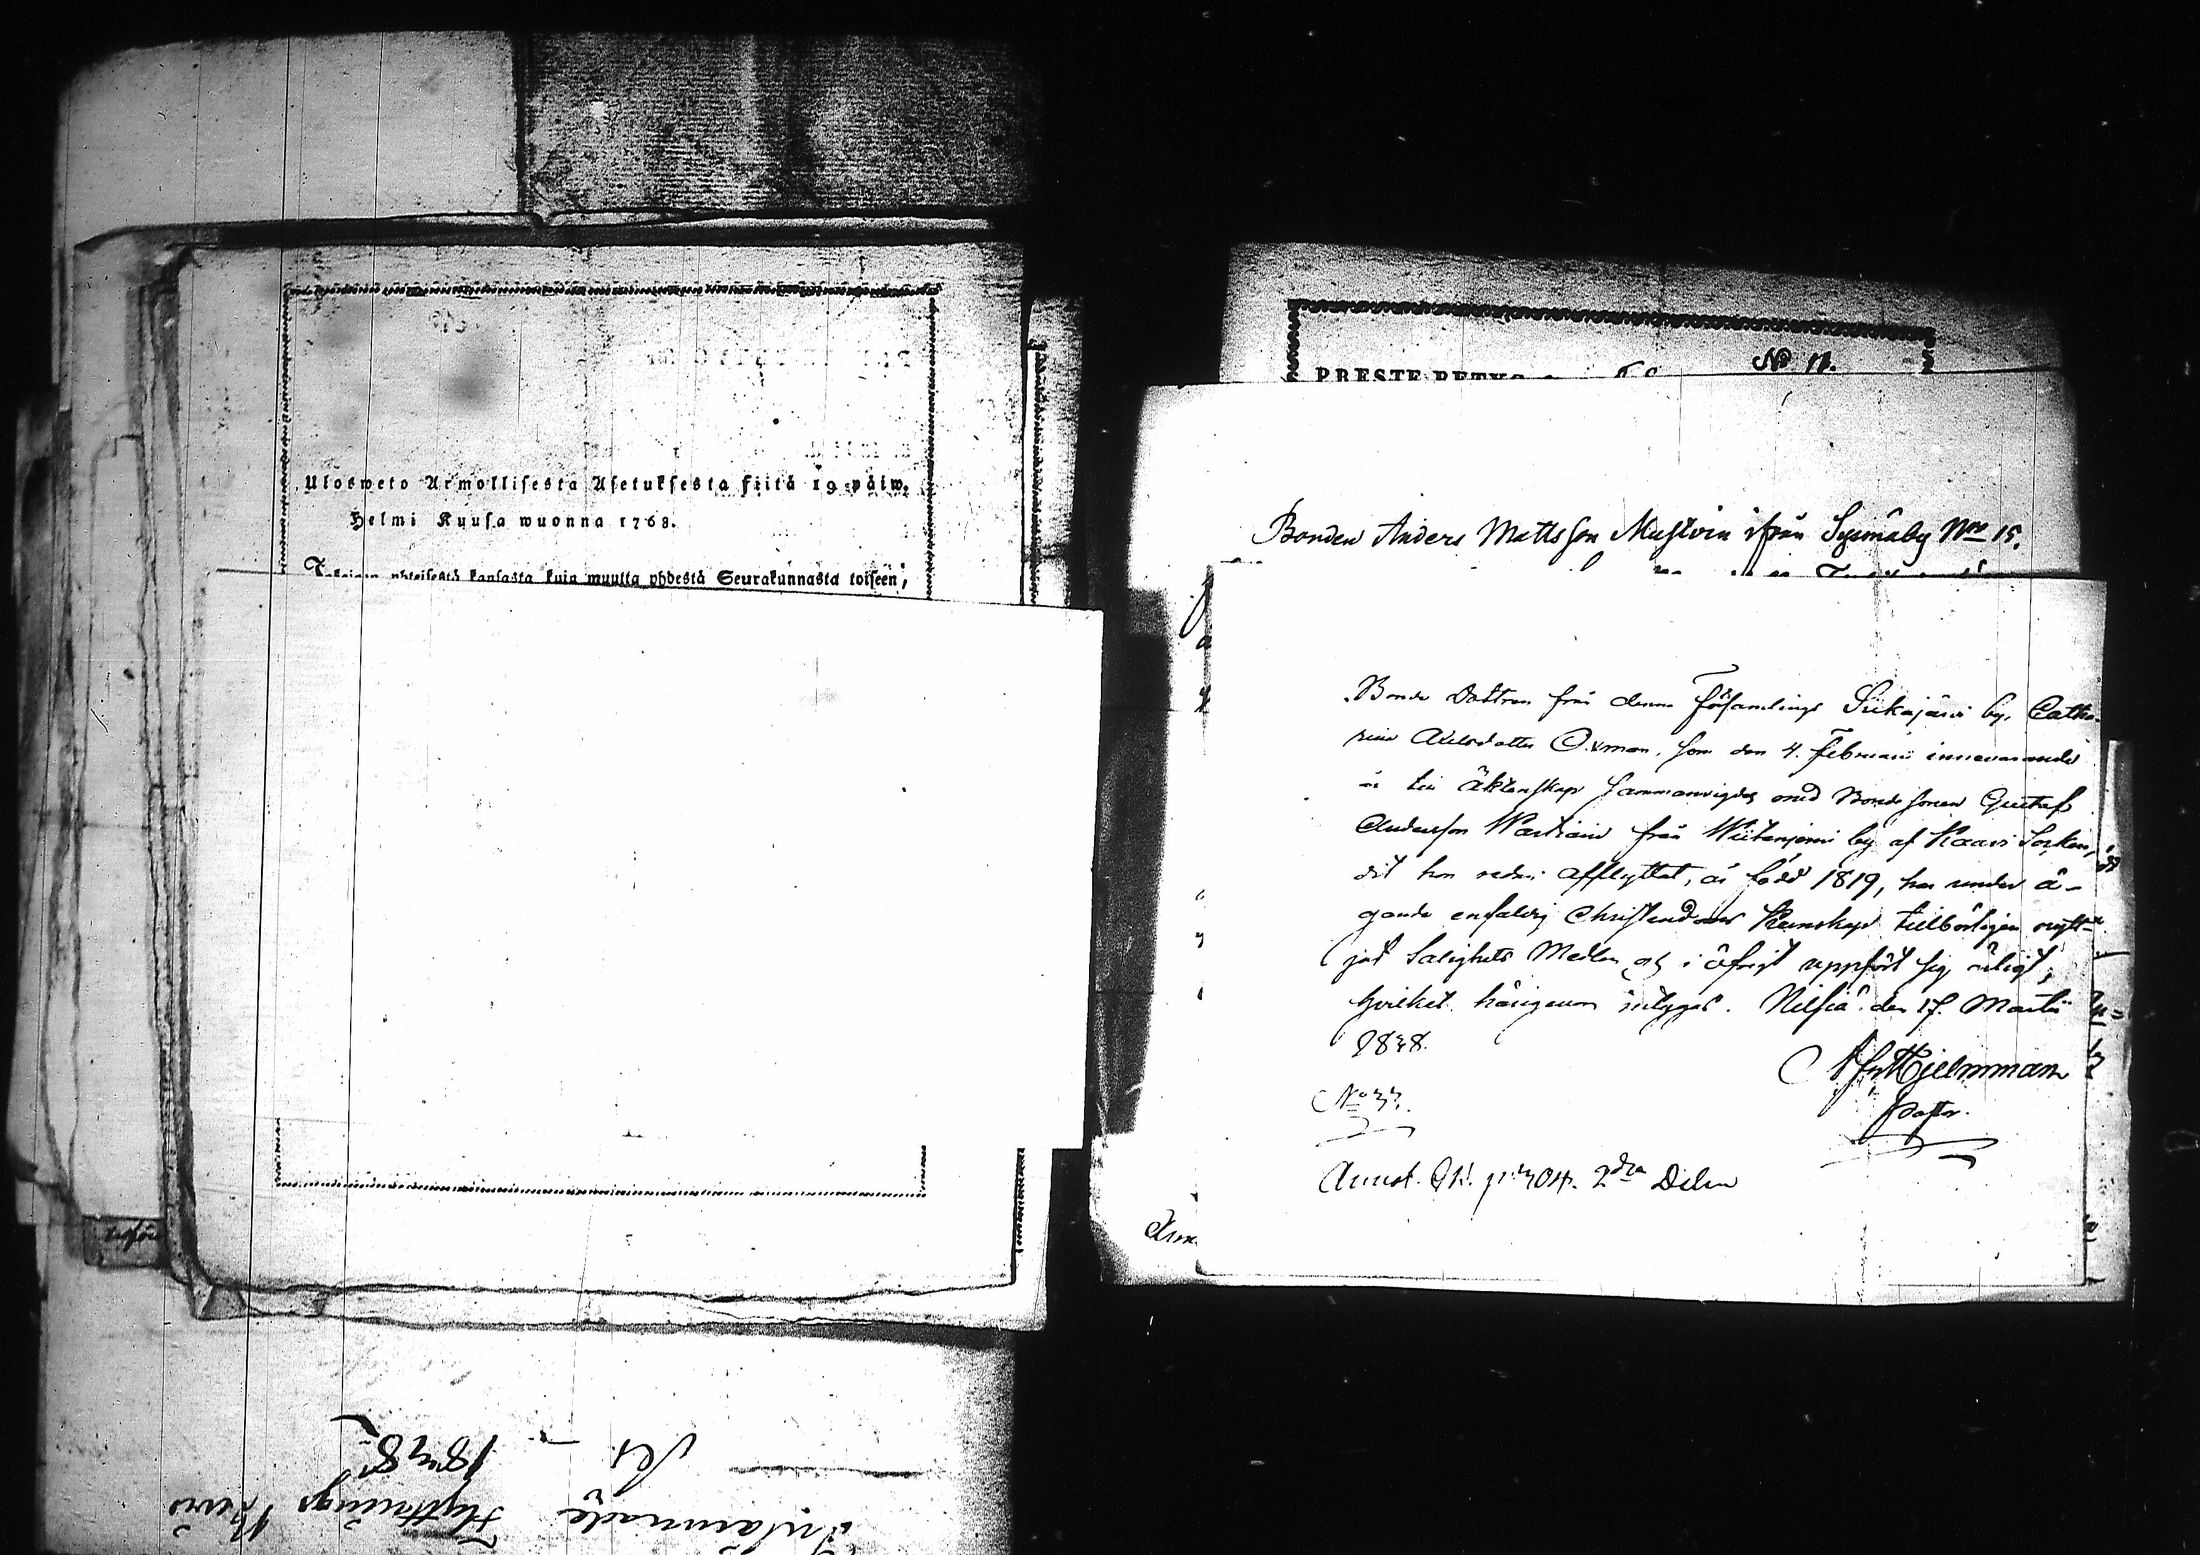 Ulosweto Armollisesta Asetuksesta siitä 19 päiw.
Helmi Kuusa wuonna 1768.
yhteisestä kansasta kuin muutta yhdestä Seurakunnasta toiseen,
No 11.
PRESTE-BETYG
Bonden Anders Mattsson Mustoin ifrån Sysmäby No 15.
Bonde Dottren från denna Församlings Siikajärvi by, Catha-
rina Axelsdotter Oxman, som den 4. Februarii innevarande
år till äktenskap sammanvigdes med Bondesonen Gustaf
Andersson Wartiain från Wiitaniemi by af Kaavi Socken,
dit hon redan afflyttat, är född 1819, har under ä-
gande enfaldig Christendoms Kunskap tillbörligen nytt-
jat Salighets Medlen och i öfrigt uppfört sig ärligt,
hvilket härigenom intygas. Nilsiä den 17. Martii
1838.
Hjelmman
Pastor.
No 33.
Annot. 304. 2dra Delen
Inlämnade
Flyttnings Bevis
1838